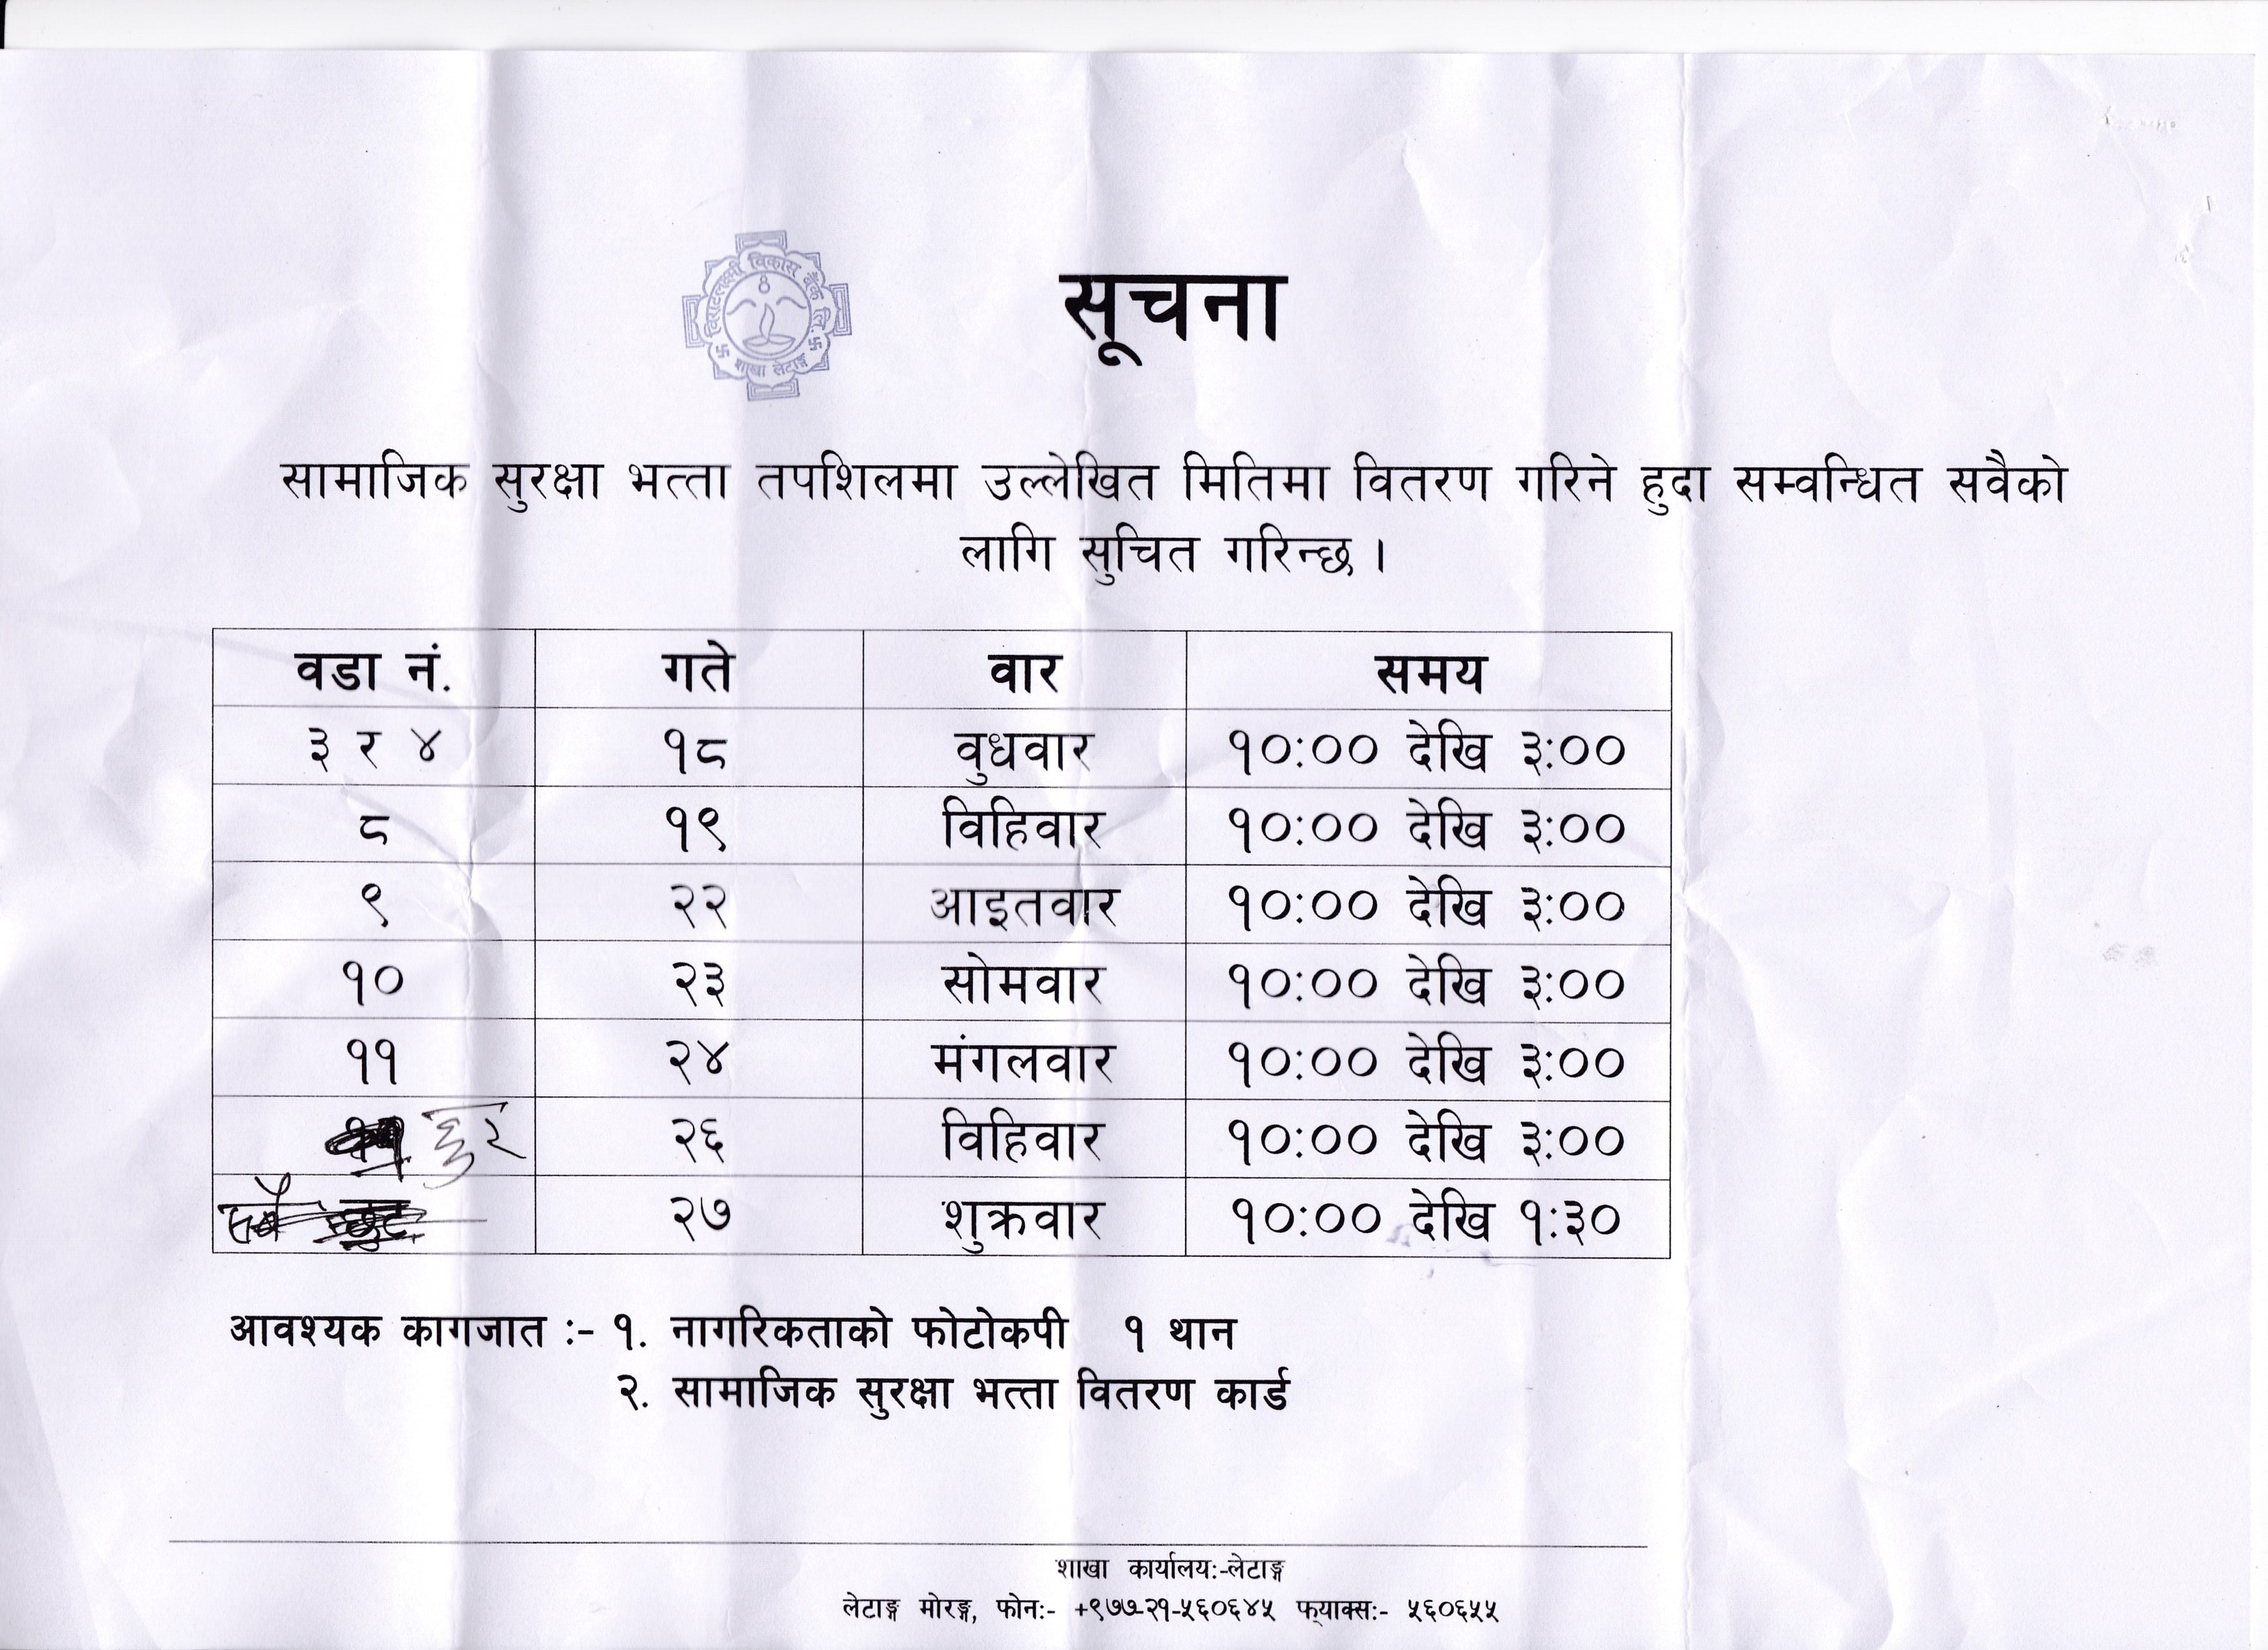 विराटलक्ष्मी विकास बैंक लि.
शाखा लेटाङ्ग
सूचना
सामाजिक सुरक्षा भत्ता तपशिलमा उल्लेखित मितिमा वितरण गरिने हुदा सम्वन्धित सवैको
लागि सुचित गरिन्छ ।
वडा नं. गते वार समय
३ र ४ १८ वुधवार १०:०० देखि ३:००
८ १९ विहिवार १०:०० देखि ३:००
९ २२ आइतवार १०:०० देखि ३:००
१० २३ सोमवार १०:०० देखि ३:००
११ २४ मंगलवार १०:०० देखि ३:००
२६ विहिवार १०:०० देखि ३:००
२७ शुक्रवार १०:०० देखि १:३०
आवश्यक कागजात :- १. नागरिकताको फोटोकपी १ थान
२. सामाजिक सुरक्षा भत्ता वितरण कार्ड
शाखा कार्यालय:-लेटाङ्ग
लेटाङ्ग मोरङ्ग, फोन:- +९७७-२१-५६०६४५ फ्याक्स:- ५६०६५५